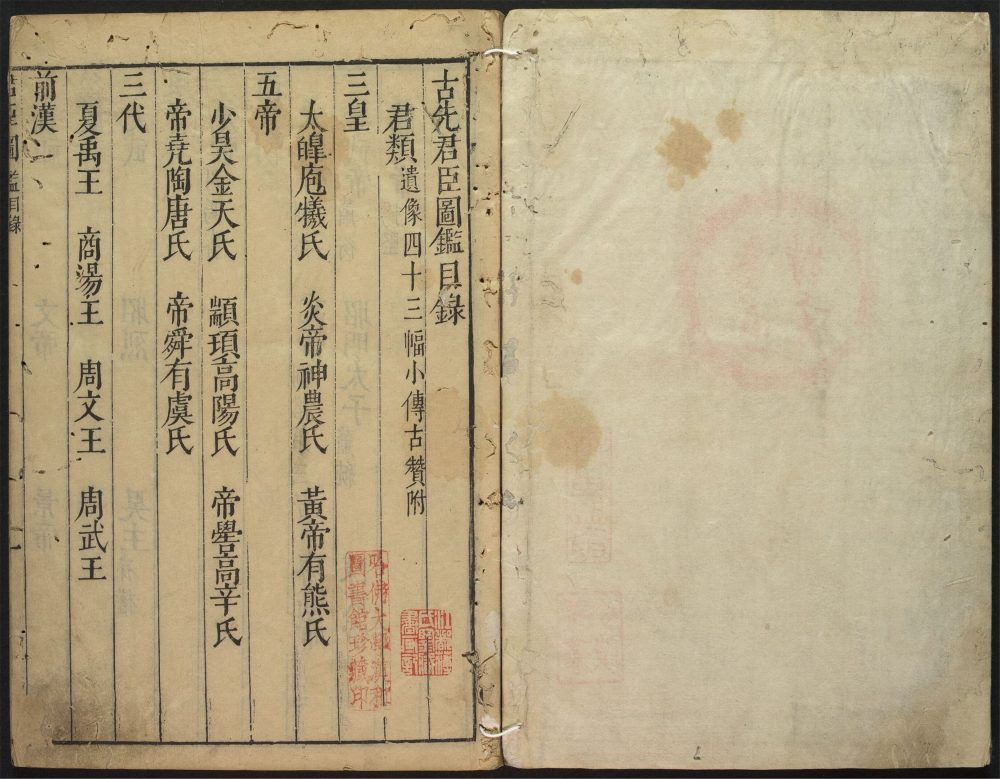 古先君臣圖鑑目錄
君類遺像四十三幅小傳古贊附
三皇
太皥庖犧氏 炎帝神農氏 黃帝有熊氏
五帝
少昊金天氏 顓頊高陽氏 帝嚳高辛氏
帝堯陶唐氏 帝舜有虞氏
三代
夏禹王 商湯王 周文王 周武王
前漢
君臣圖鑑目錄
哈佛大學漢和
圖書館珍藏印